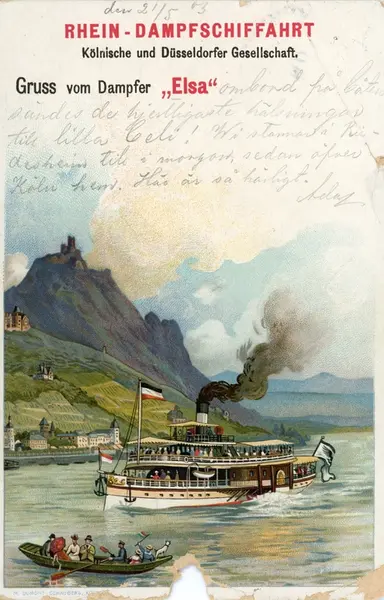 den 21/5 03
RHEIN - DAMPFSCHIFFAHRT
Kölnische und Düsseldorfer Gesellschaft.
Gruss vom Dampfer „Elsa“ ombord på båten
sändes de hjertligaste hälsningar
till lilla Celi! Vi stanna i Rü-
desheim till i morgon, sedan öfver
Köln hem. Här är så härligt.